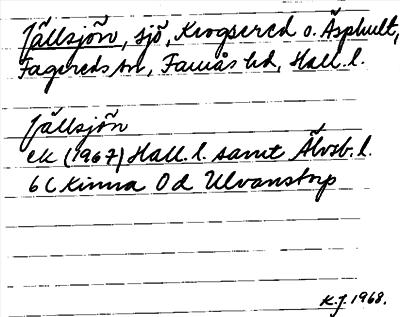 Jällsjön, sjö, Krogsered o. Äsphult,
Fagereds sn, Faurås hd, Hall. l.
Jällsjön
ek (1967) Hall. l. samt Älvsb. l.
6 C Kinna 0 d Ulvanstorp
K.J. 1968.